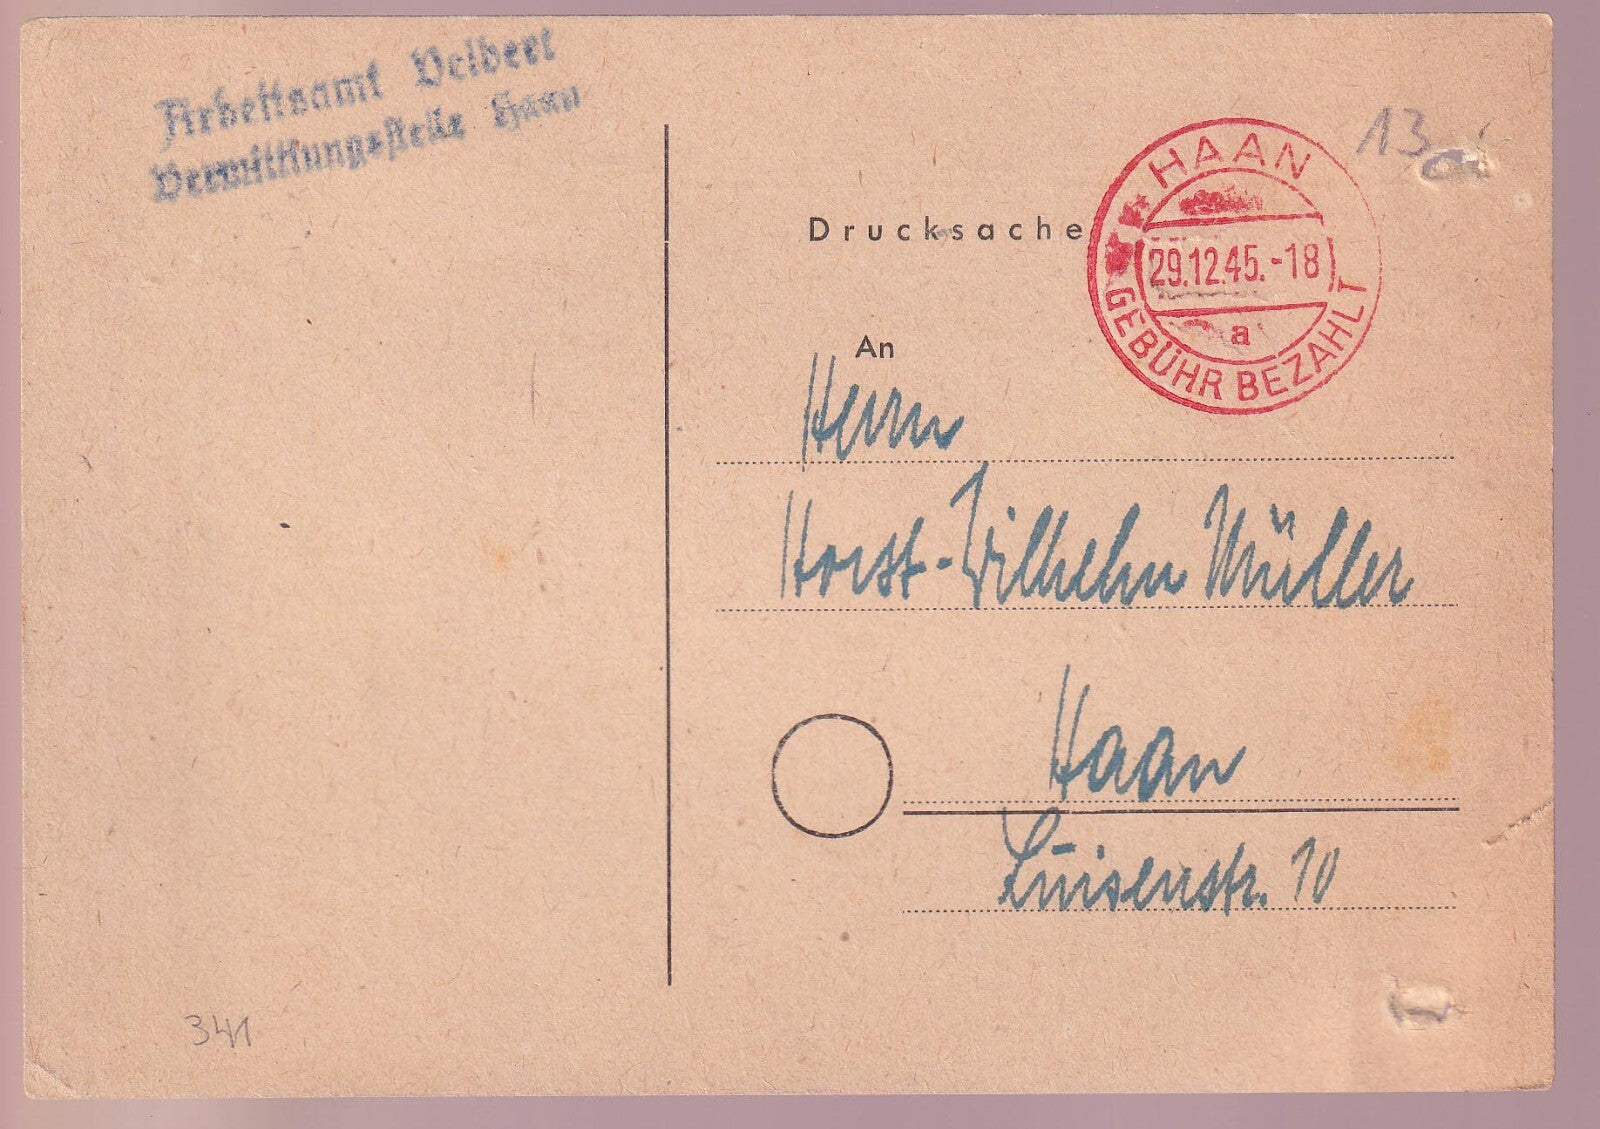 Arbeitsamt Velbert
Vermittlungsstelle Haan
13
HAAN
29.12.45.-18
a
GEBÜHR BEZAHLT
Drucksache
An
Herrn
Horst-Wilhelm Müller
Haan
Luisenstr. 10
341